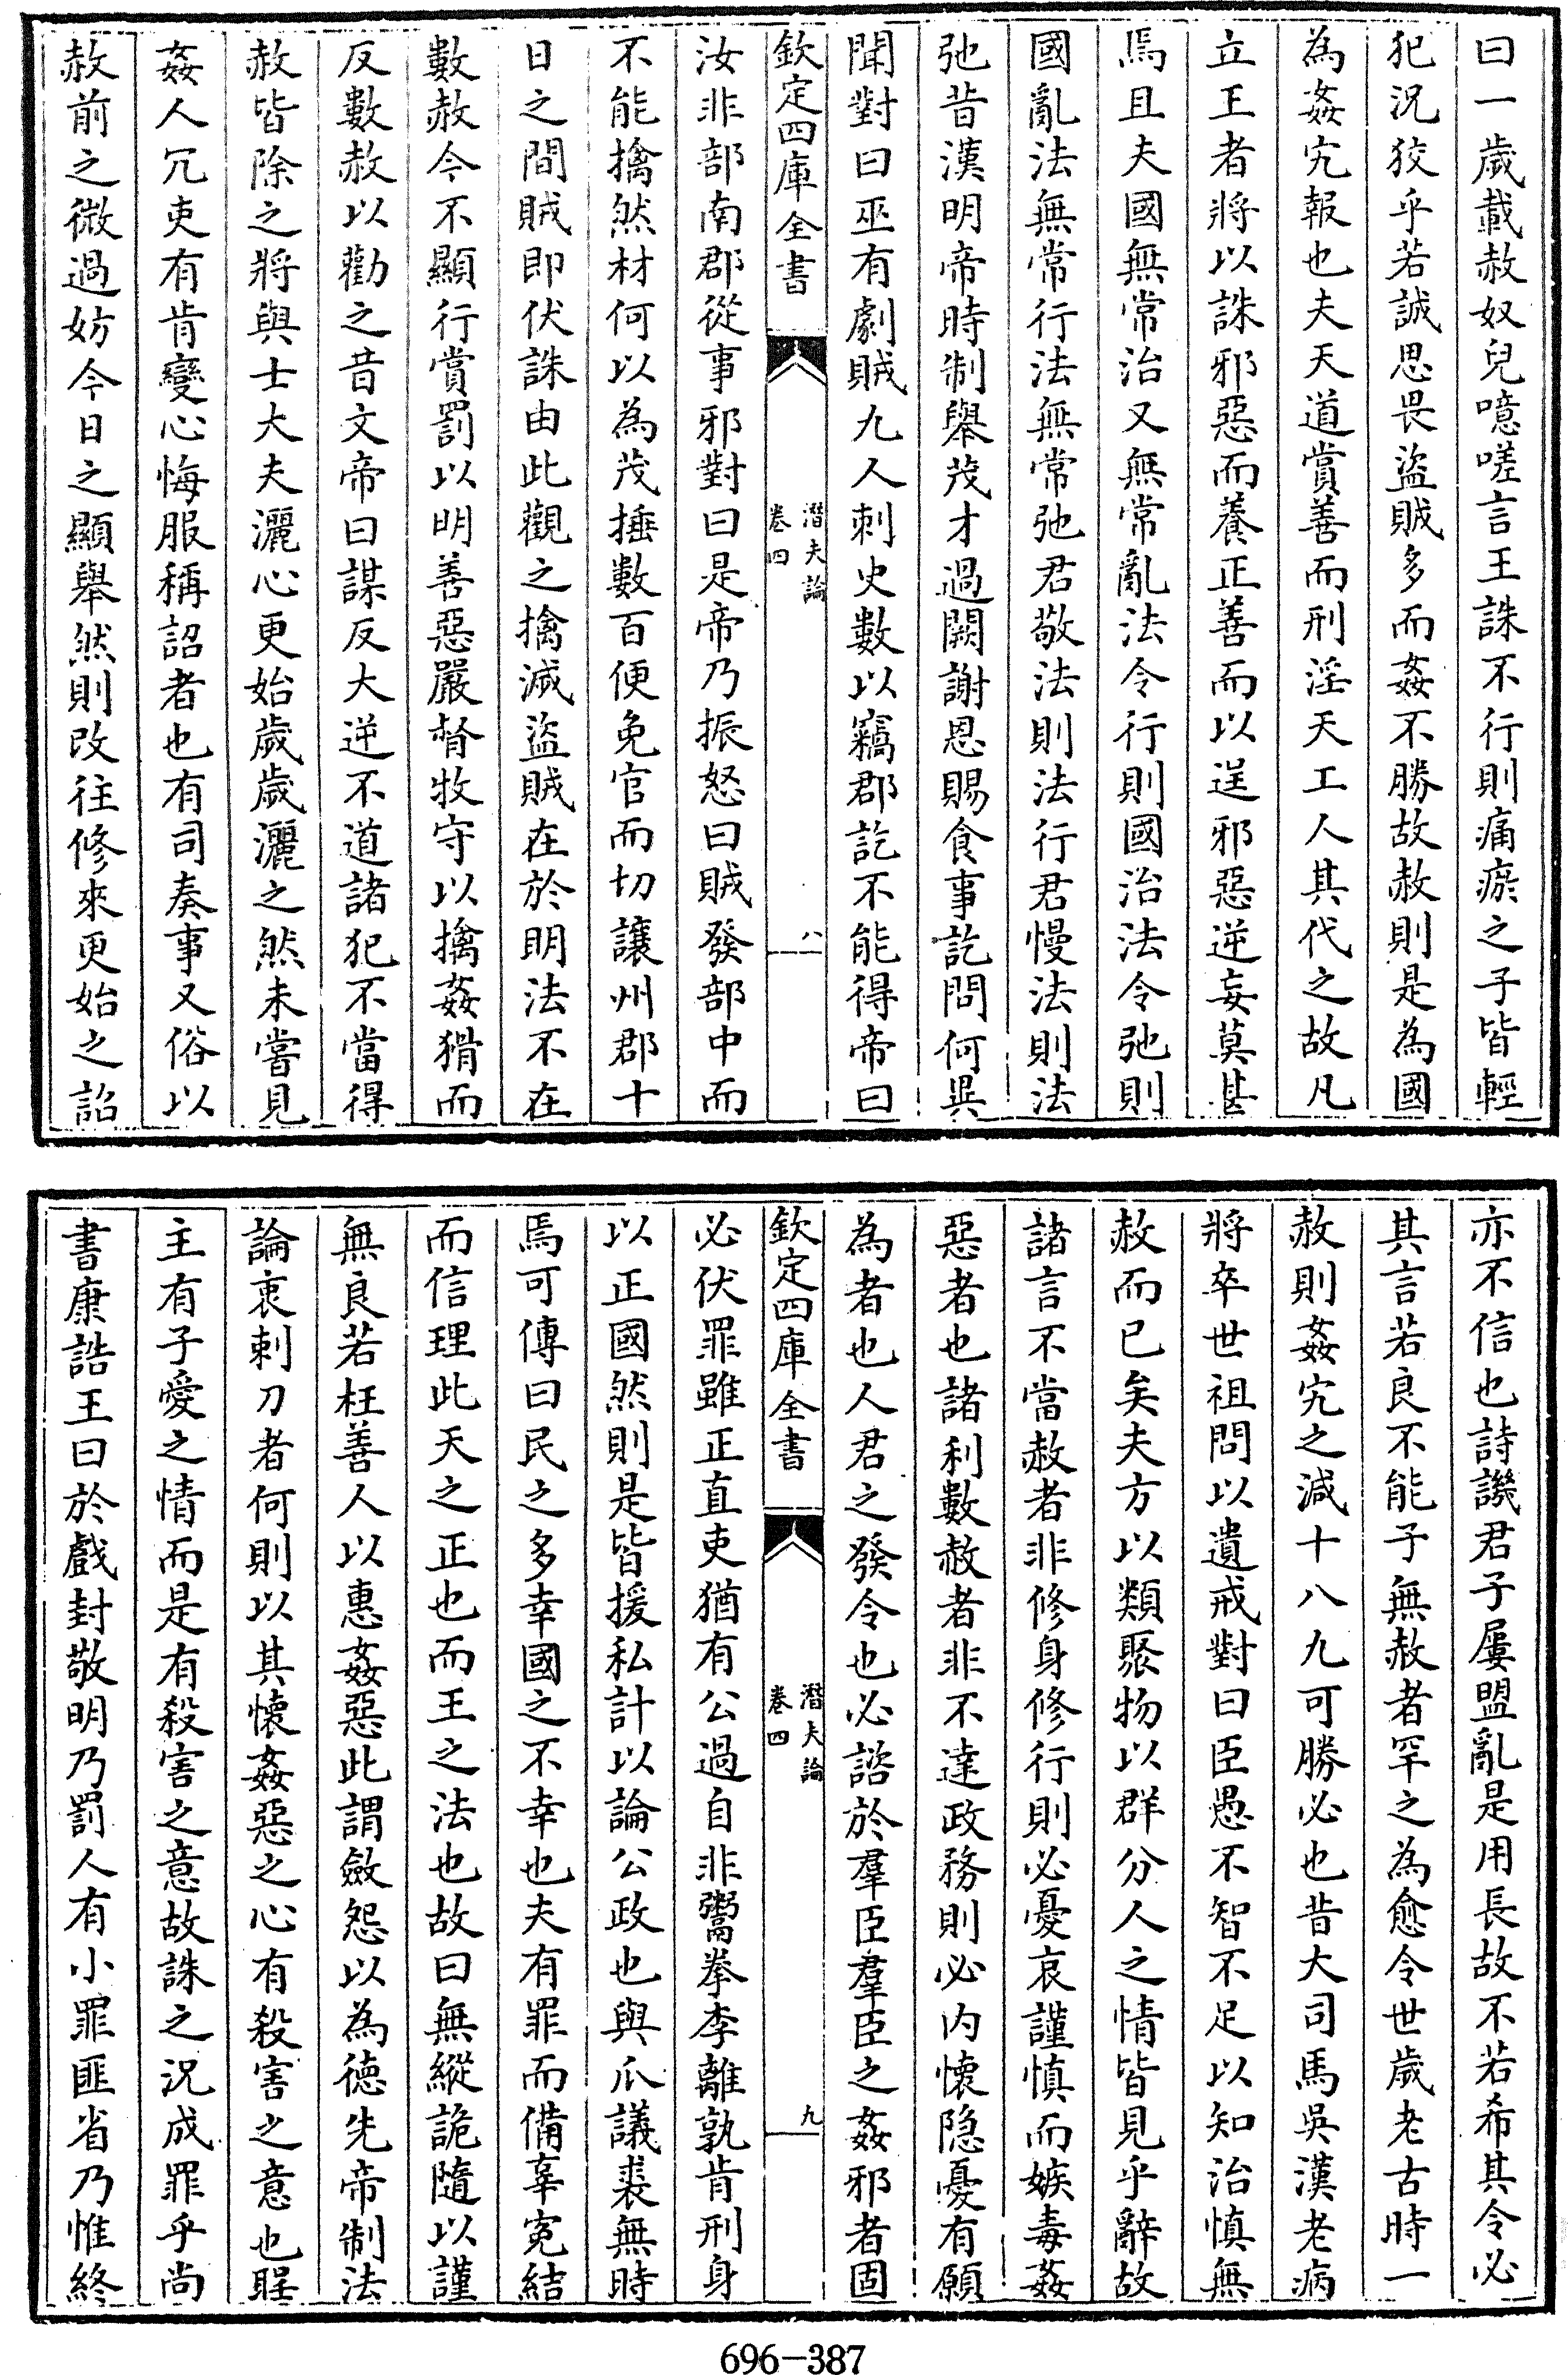 曰一歲載赦奴兒噫嗟言王誅不行則痛瘀之子皆輕
犯況狡乎若誠思畏盜賊多而姦不勝故赦則是為國
為姦宄報也夫天道賞善而刑淫天工人其代之故凡
立王者將以誅邪惡而養正善而以逞邪惡逆妄莫甚
焉且夫國無常治又無常亂法令行則國治法令弛則
國亂法無常行法無常弛君敬法則法行君慢法則法
弛昔漢明帝時制舉茂才過闕謝恩賜食事訖問何異
聞對曰巫有劇賊九人刺史數以竊郡訖不能得帝曰
欽定四庫全書
潛夫論
卷四
八
汝非部南郡從事邪對曰是帝乃振怒曰賊發部中而
不能擒然材何以為茂捶數百便免官而切讓州郡十
日之間賊即伏誅由此觀之擒滅盜賊在於明法不在
數赦今不顯行賞罰以明善惡嚴督牧守以擒姦猾而
反數赦以勸之昔文帝曰謀反大逆不道諸犯不當得
赦皆除之將與士大夫灑心更始歲歲灑之然未嘗見
姦人冗吏有肯變心悔服稱詔者也有司奏事又俗以
赦前之微過妨今日之顯舉然則改往修來更始之詔
亦不信也詩譏君子屢盟亂是用長故不若希其令必
其言若良不能子無赦者罕之為愈令世歲老古時一
赦則姦宄之減十八九可勝必也昔大司馬吳漢老病
將卒世祖問以遺戒對曰臣愚不智不足以知治慎無
赦而已矣夫方以類聚物以群分人之情皆見乎辭故
諸言不當赦者非修身修行則必憂哀謹慎而嫉毒姦
惡者也諸利數赦者非不達政務則必內懷隱憂有願
為者也人君之發令也必諮於羣臣羣臣之姦邪者固
欽定四庫全書
潛夫論
卷四
九
必伏罪雖正直吏猶有公過自非鬻拳李離孰肯刑身
以正國然則是皆援私計以論公政也與爪議裘無時
焉可傳曰民之多幸國之不幸也夫有罪而備辜寃結
而信理此天之正也而王之法也故曰無縱詭隨以謹
無良若枉善人以惠姦惡此謂斂怨以為德先帝制法
論衷刺刀者何則以其懷姦惡之心有殺害之意也聖
主有子愛之情而是有殺害之意故誅之況成罪乎尚
書康誥王曰於戲封敬明乃罰人有小罪匪省乃惟終
696-387